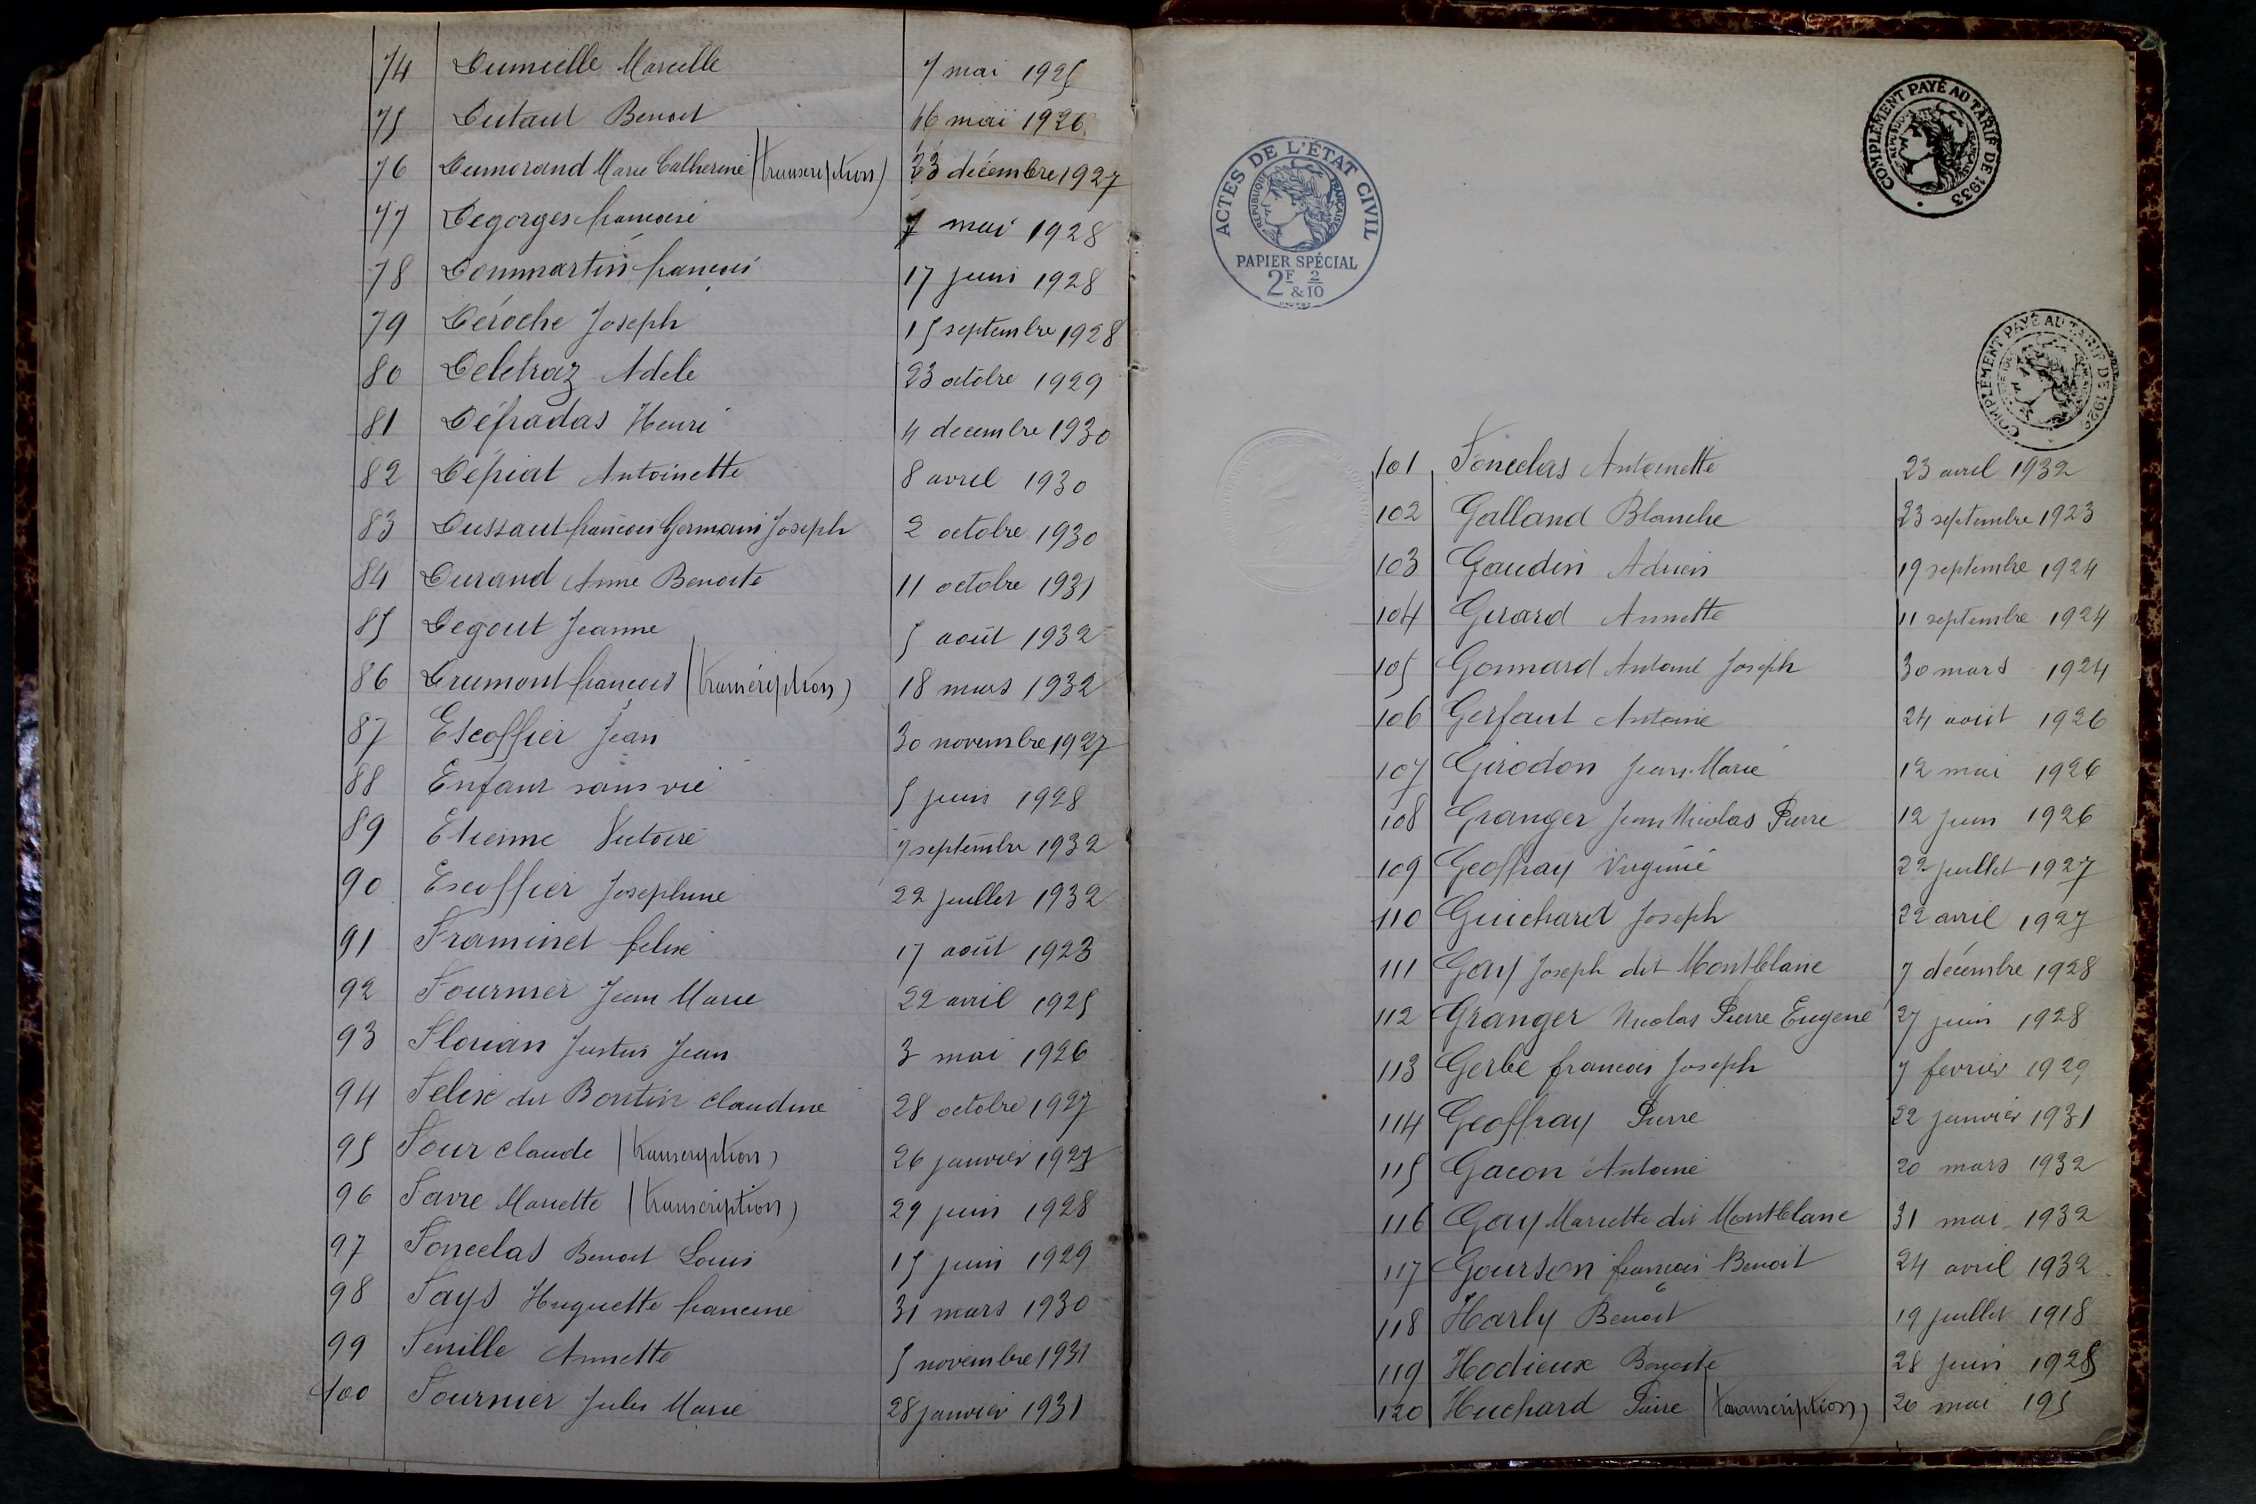 74 Dumielle Marcelle 7 mai 1925
75 Dutaut Benoit 16 mai 1926
76 Dumorand Marie Catherine (transcription) 23 décembre 1927
77 Degorges françoise 7 mai 1928
78 Dommartin françois 17 juin 1928
79 Déroche Joseph 15 septembre 1928
80 Deletraz Adele 23 octobre 1929
81 Défradas Henri 4 decembre 1930
82 Dépiat Antoinette 8 avril 1930
83 Dussaut françois Germain Joseph 2 octobre 1930
84 Durand Anne Benoite 11 octobre 1931
85 Degout Jeanne 5 août 1932
86 Drumont françois (transcription) 18 mars 1932
87 Escoffier Jean 30 novembre 1927
88 Enfant sans vie 5 juin 1928
89 Etienne Victoire 7 septembre 1932
90 Escoffier Josephine 22 juillet 1932
91 Framinet felix 17 août 1923
92 Fournier Jean Marie 22 avril 1925
93 Florian Justin Jean 3 mai 1926
94 Felix dit Bontin claudine 28 octobre 1927
95 Four claude (transcription) 26 janvier 1927
96 Favre Mariette (transcription) 29 juin 1928
97 Fonselas Benoit Louis 15 juin 1929
98 Fays Huguette francine 31 mars 1930
99 Fenille Annette 5 novembre 1931
100 Fournier Jules Marie 28 janvier 1931
ACTES DE L'ÉTAT CIVIL
RÉPUBLIQUE FRANÇAISE
PAPIER SPÉCIAL
2F & 2/10
COMPLÉMENT PAYÉ AU TARIF DE 1933
COMPLÉMENT PAYÉ AU TARIF DE 1926
101 Fonselas Antoinette 23 avril 1932
102 Galland Blanche 23 septembre 1923
103 Gaudin Adrien 19 septembre 1924
104 Girard Annette 11 septembre 1924
105 Gonnard Antoine Joseph 30 mars 1924
106 Gerfaut Antoine 24 août 1926
107 Girodon Jean-Marie 12 mai 1926
108 Granger Jean Nicolas Pierre 12 juin 1926
109 Geoffray Virginie 22 juillet 1927
110 Guichard Joseph 22 avril 1927
111 Gay Joseph dit Montblanc 7 décembre 1928
112 Granger Nicolas Pierre Eugene 27 juin 1928
113 Gerbe francois Joseph 7 fevrier 1929
114 Geoffray Pierre 22 janvier 1931
115 Gacon Antoine 20 mars 1932
116 Gay Mariette dit Montblanc 31 mai 1932
117 Gourson françois Benoit 24 avril 1932
118 Harly Benoit 19 juillet 1918
119 Hodieux Benoite 28 juin 1925
120 Huchard Pierre (transcription) 26 mai 195